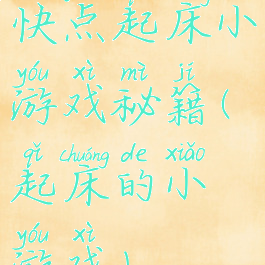 快点起床小
yóu xì mì jí
游戏秘籍(
qǐ chuáng de xiǎo
起床的小
yóu xì
游戏)